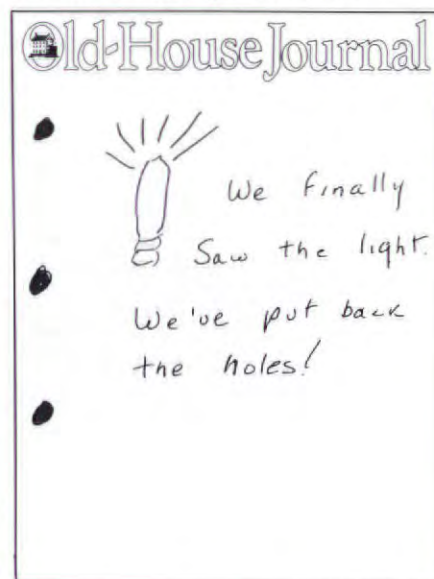 Old-House Journal
We finally
Saw the light.
We've put back
the holes!